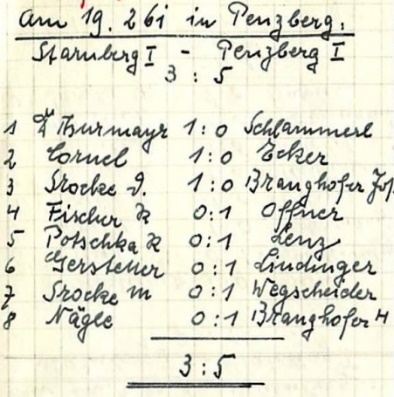 Am 19. 2 61 in Penzberg.
Starnberg I - Penzberg I
3 : 5
1 Thurmayr 1:0 Schlammerl
2 Cornel 1:0 Ecker
3 Srocke J. 1:0 Branghofer Jos
4 Fischer K 0:1 Offner
5 Potschka K 0:1 Lenz
6 Gerstener 0:1 Lindinger
7 Srocke M 0:1 Wegscheider
8 Nägle 0:1 Branghofer H
3:5